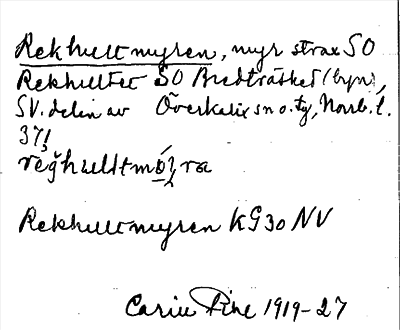 Rekhultmyren, myr strax SO
Rekhultet SO Bredträsket (byn),
SV. delen av Överkalix sn o. tg, Norrb. l.
37/
Rekhultmyren KG30 NV
Carin Pihl 1919-27